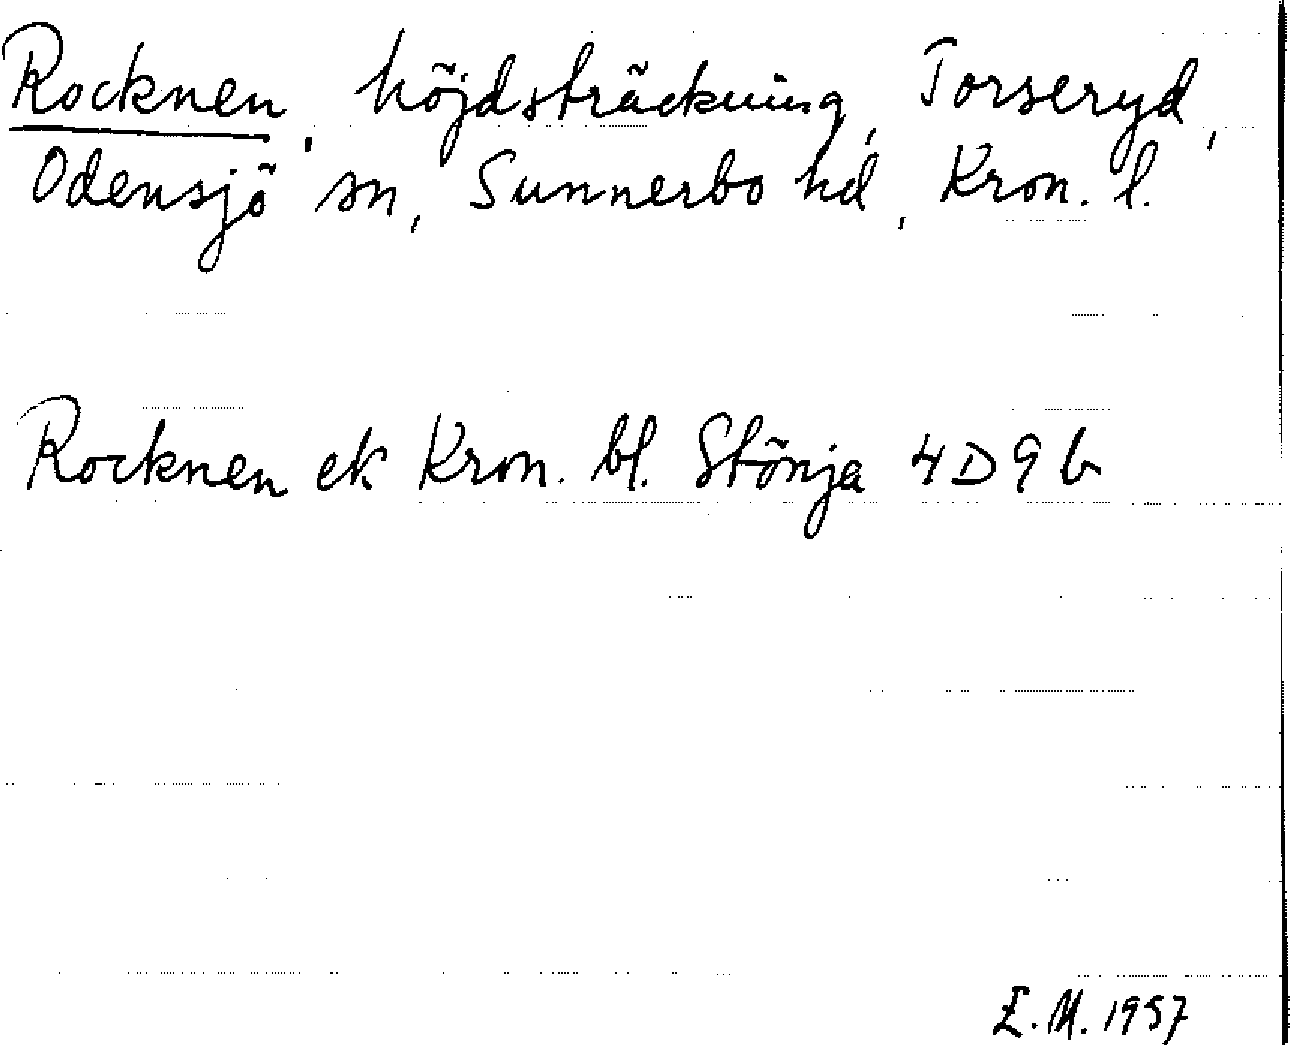 Rocknen, höjdsträckning, Torseryd,
Odensjö sn, Sunnerbo hd, Kron. l.
Rocknen ek Kron. bl. Stönja 4D9b
E.M. 1957